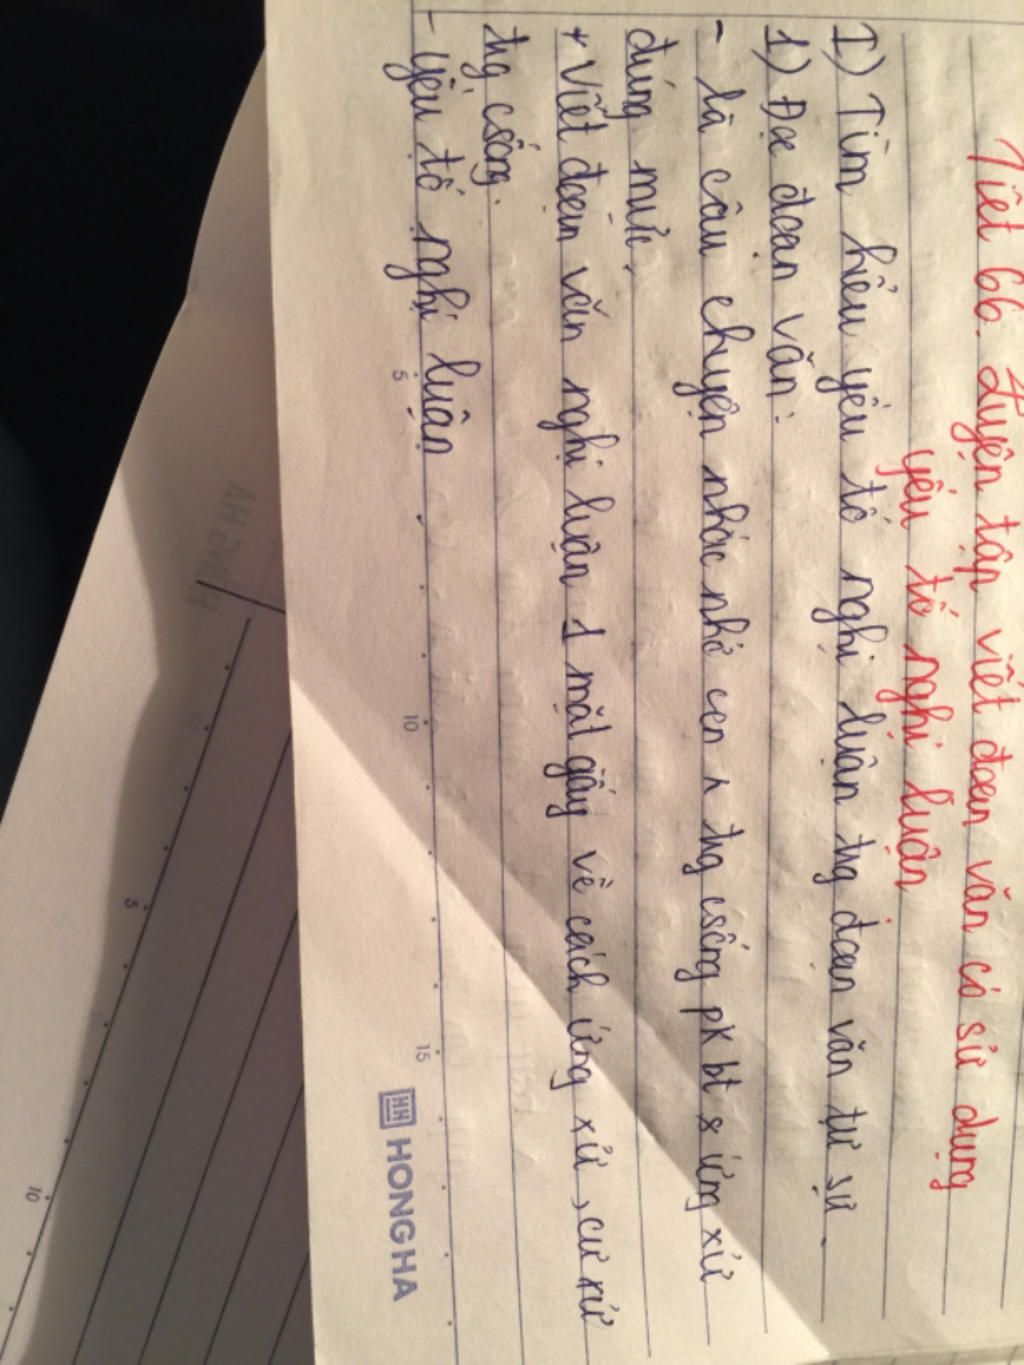 Tiết 66. Luyện tập viết đoạn văn có sử dụng
yếu tố nghị luận
I) Tìm hiểu yếu tố nghị luận trg đoạn văn tự sự.
1) Đọc đoạn văn:
- là câu chuyện nhắc nhở con trg csống pk bt ứng xử
đúng mực.
+ Viết đoạn văn nghị luận 1 mặt giấy về cách ứng xử, cư xử
trg csống.
- yếu tố nghị luận
5
10
15
HH HONG HA
5
10